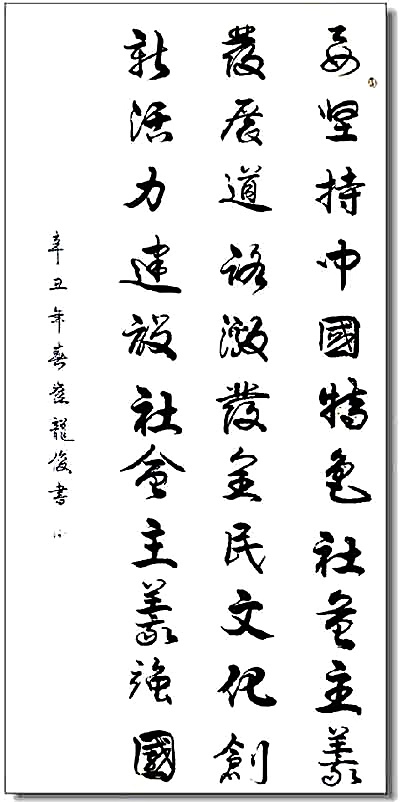 要坚持中國特色社會主義
發展道路激發全民文化創
新活力建設社會主義強國
辛丑年春崔龍俊書